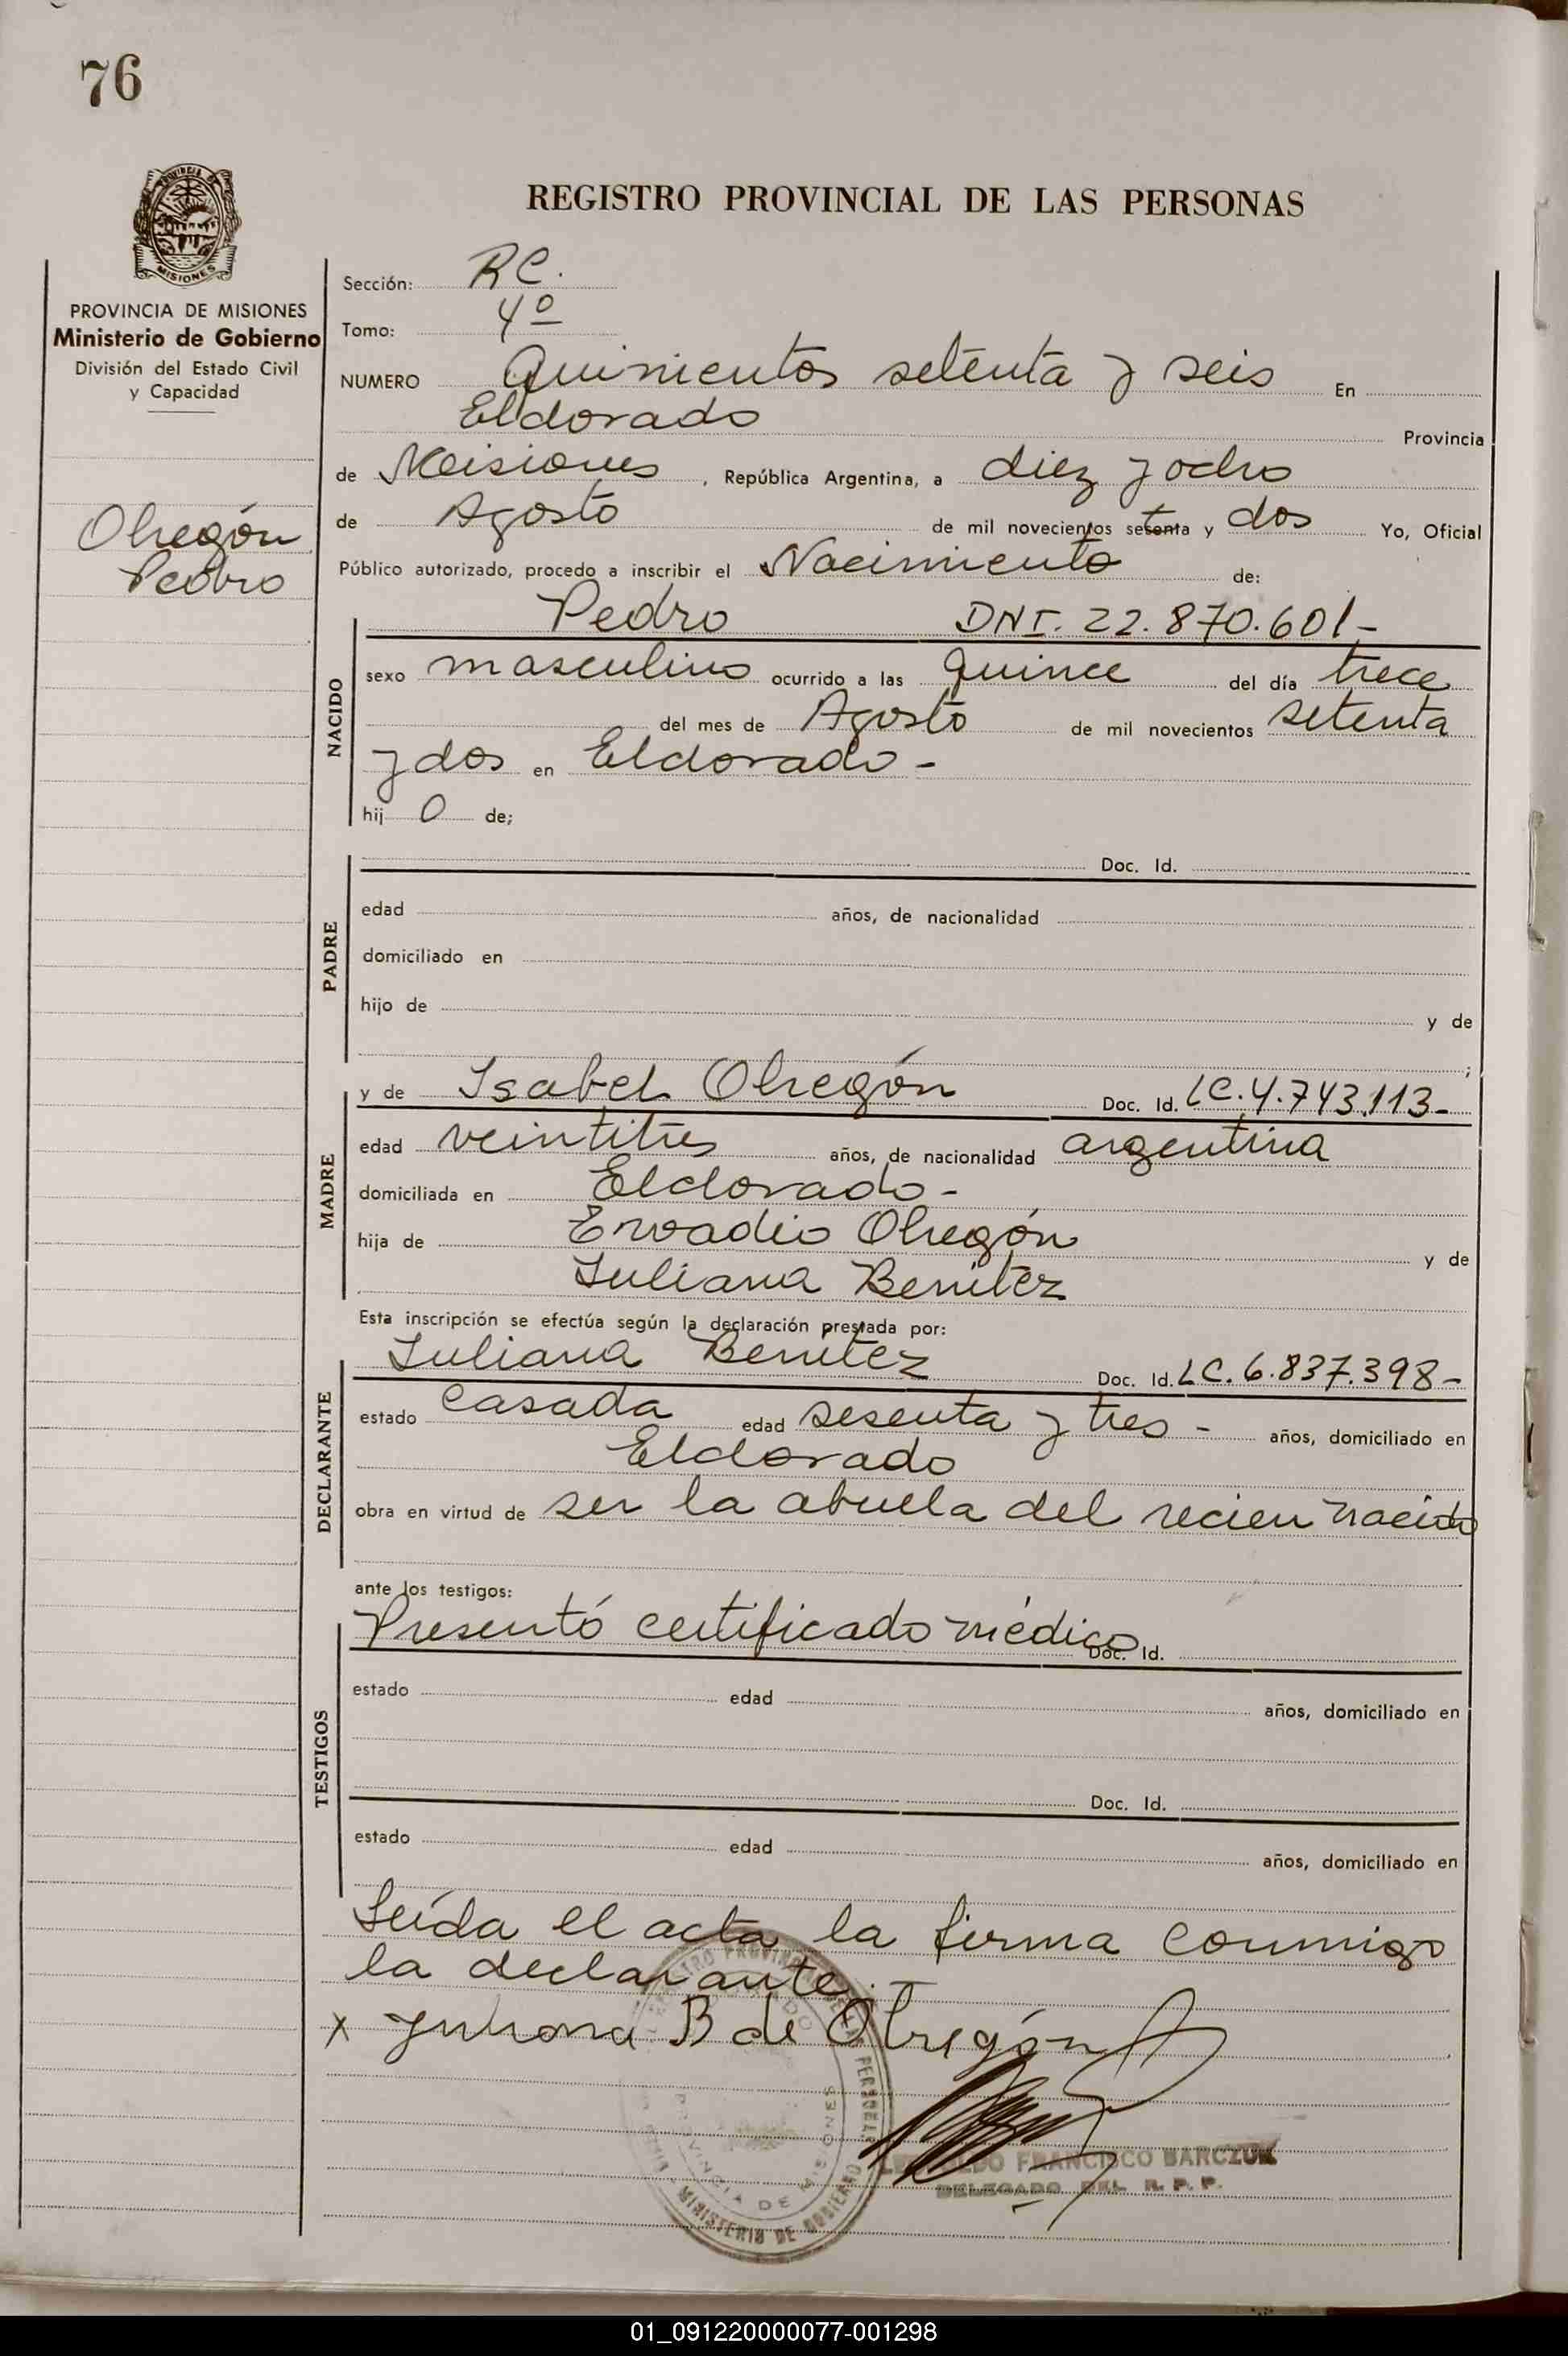 76
PROVINCIA DE MISIONES
Ministerio de Gobierno
División del Estado Civil
y Capacidad
Obregón
Pedro
REGISTRO PROVINCIAL DE LAS PERSONAS
Sección: RC.
Tomo: 4º
NUMERO Quinientos setenta y seis En
Eldorado Provincia
de Misiones, República Argentina, a diez y ocho
de Agosto de mil novecientos setenta y dos Yo, Oficial
Público autorizado, procedo a inscribir el Nacimiento de:
NACIDO
Pedro DNI. 22.870.601-
sexo masculino ocurrido a las quince del día trece
del mes de Agosto de mil novecientos setenta
y dos en Eldorado-
hij o de;
PADRE
Doc. Id.
edad años, de nacionalidad
domiciliado en
hijo de y de
;
MADRE
y de Isabel Obregón Doc. Id. LC.4.743.113-
edad veintitres años, de nacionalidad argentina
domiciliada en Eldorado-
hija de Obregón y de
Juliana Benitez
Esta inscripción se efectúa según la declaración prestada por:
DECLARANTE
Juliana Benitez Doc. Id. LC.6.837.398-
estado casada edad sesenta y tres - años, domiciliado en
Eldorado
obra en virtud de ser la abuela del recien nacido
ante los testigos:
TESTIGOS
Presentó certificado médico Doc. Id.
estado edad años, domiciliado en
Doc. Id.
estado edad años, domiciliado en
Leída el acta la firma conmigo
la declarante.-
x Juliana B de Obregón
FRANCISCO BARCZUK
DELEGADO DEL R. P. P.
PROVINCIA DE MISIONES
MINISTERIO DE GOBIERNO
01_091220000077-001298